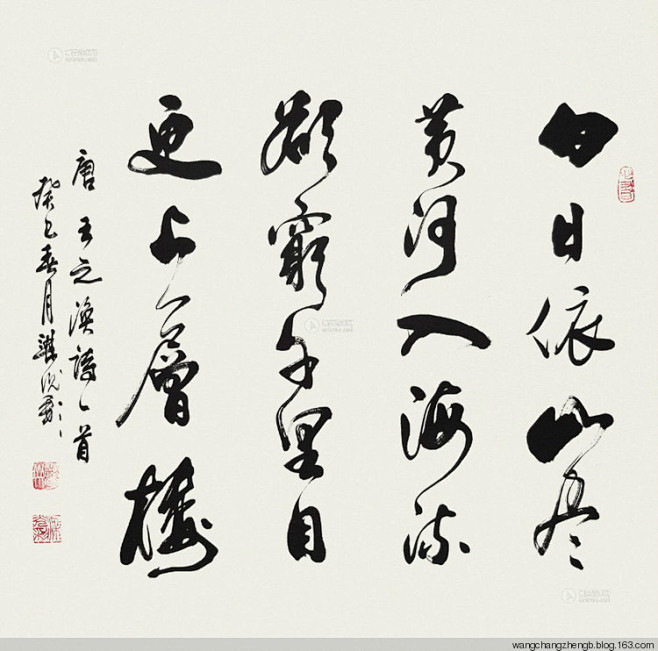 白日依山尽
黄河入海流
欲穷千里目
更上一層楼
唐王之涣詩一首
癸巳春月
wangchangzhengb.blog.163.com